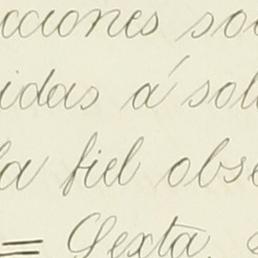 cciones so
idas á sol
la fiel obse
= Sexta.